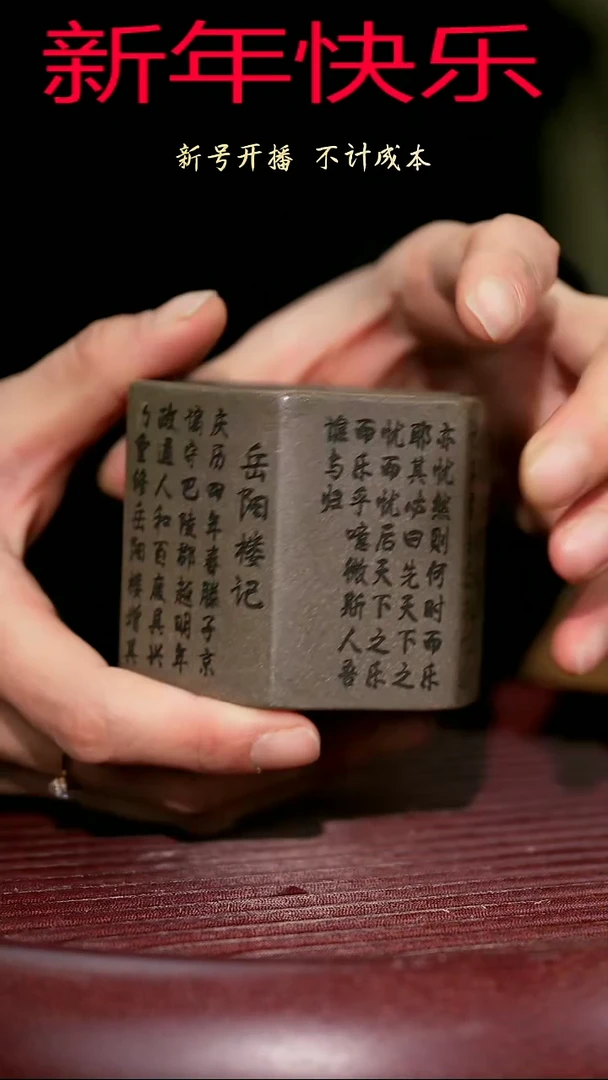 新年快乐
新号开播 不计成本
岳阳楼记
庆历四年春滕子京
谪守巴陵郡越明年
政通人和百废具兴
乃重修岳阳楼增其
亦忧然则何时而乐
耶其必曰先天下之
忧而忧后天下之乐
而乐乎噫微斯人吾
谁与归